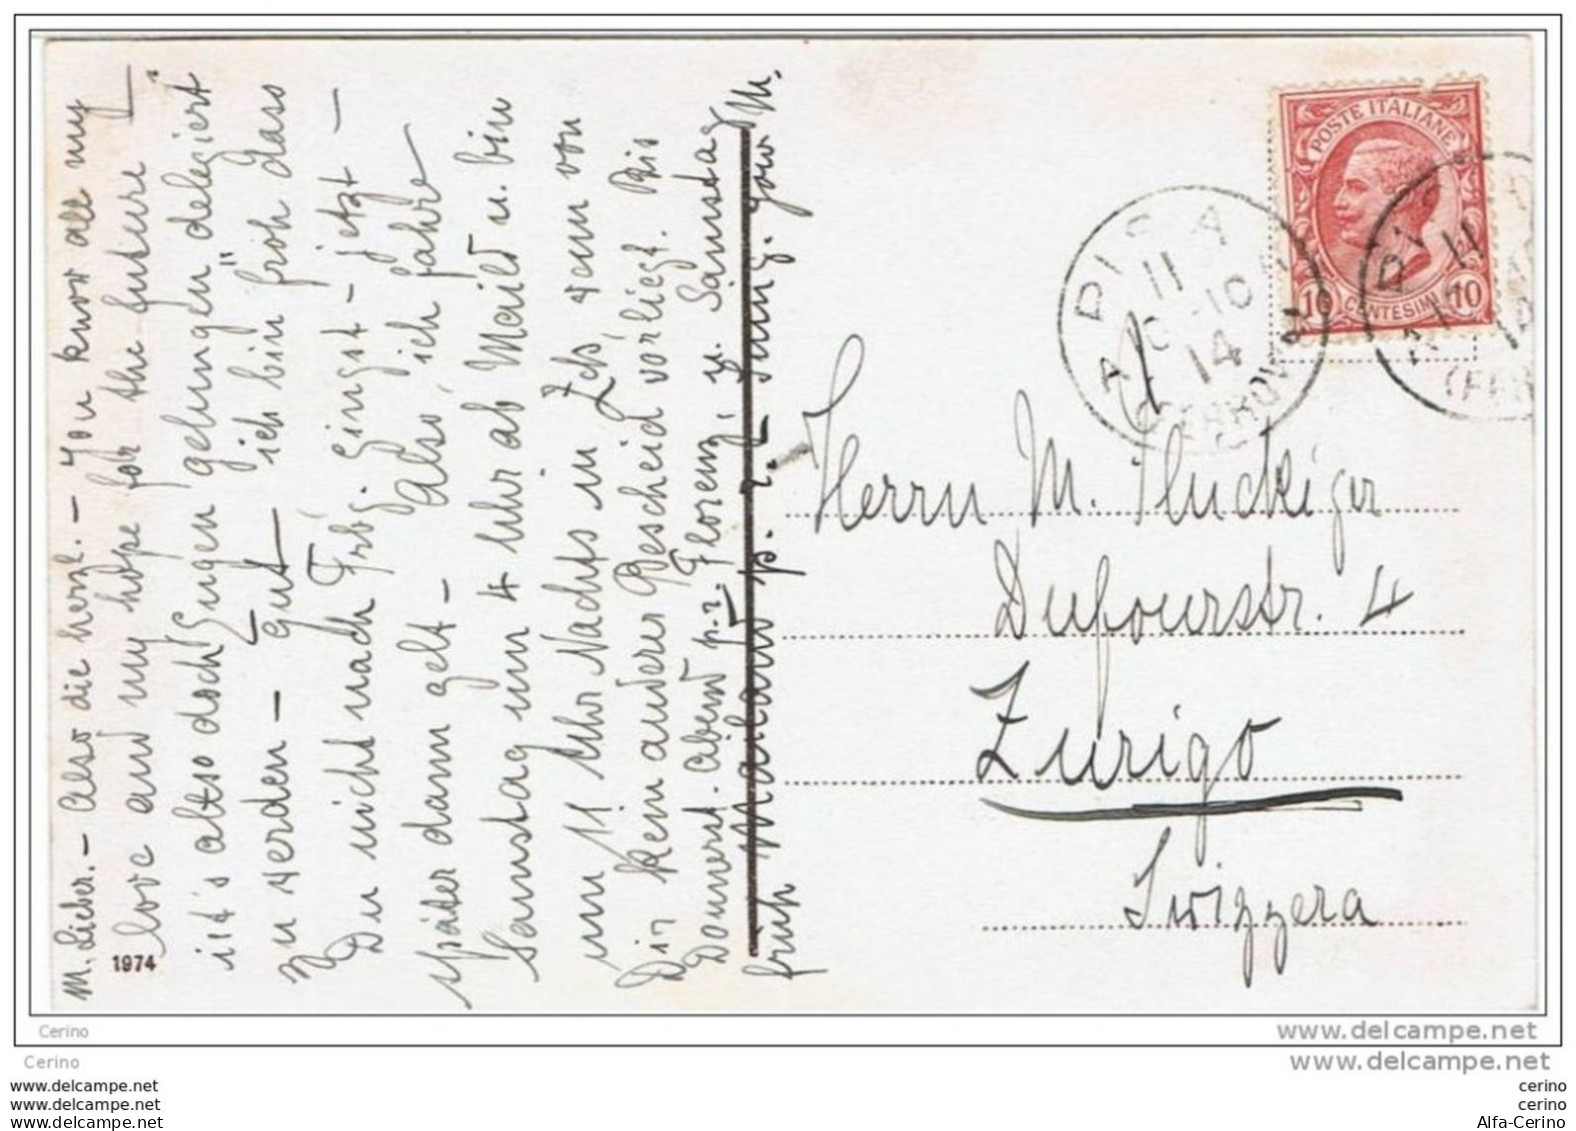 M. Lieber. - Also die herzl. - You know all my
love and my hope for the future -
ist's also doch "Eugen" gelungen delegiert
zu werden - Gut - ich bin froh dass
Du nicht nach Frbg. gingst - jetzt -
später dann gelt - Also, ich fahre
Samstag um 4 Uhr ab Meild u. bin
um 11 Uhr Nachts in Zch, wenn von
Dir kein anderer Bescheid vorliegt. Bis
Donnerst. abend p.r. Florenz, u. Samstag
früh Mailand p. r. - Innig. Yow M.
1974
POSTE ITALIANE
10 CENTESIMI 10
PISA
11
10
14
(FERROVIA)
Herrn M. Fluckiger
Dufourstr. 4
Zurigo
Svizzera
Cerino
www.delcampe.net
Cerino
www.delcampe.net
www.delcampe.net
cerino
www.delcampe.net
cerino
www.delcampe.net
Alfa-Cerino